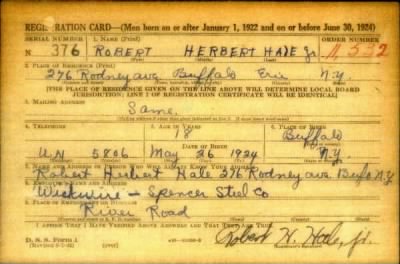 REGISTRATION CARD—(Men born on or after January 1, 1922 and on or before June 30, 1924)
SERIAL NUMBER 1. NAME (Print) ORDER NUMBER
N 376 ROBERT HERBERT HALE Jr. 11,532
(First) (Middle) (Last)
2. PLACE OF RESIDENCE (Print)
276 Rodney ave Buffalo Erie N.Y.
[THE PLACE OF RESIDENCE GIVEN ON THE LINE ABOVE WILL DETERMINE LOCAL BOARD
JURISDICTION; LINE 2 OF REGISTRATION CERTIFICATE WILL BE IDENTICAL]
3. MAILING ADDRESS
Same.
4. TELEPHONE 5. AGE IN YEARS 6. PLACE OF BIRTH
18 Buffalo
DATE OF BIRTH
UN 5806 May 26 1924 N.Y.
7. NAME AND ADDRESS OF PERSON WHO WILL ALWAYS KNOW YOUR ADDRESS
Robert Herbert Hale 276 Rodney ave. Bufo N.Y
8. EMPLOYER'S NAME AND ADDRESS
Wickwire – Spencer Steel Co
9. PLACE OF EMPLOYMENT OR BUSINESS
River Road
I AFFIRM THAT I HAVE VERIFIED ABOVE ANSWERS AND THAT THEY ARE TRUE.
D. S. S. FORM 1
Robert H. Hale, Jr.